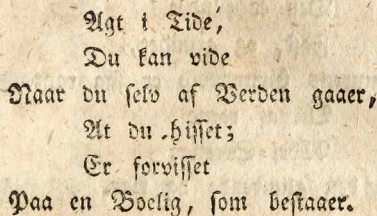 Agt i Tide,
Du kan vide
Naar du selv af Verden gaaer,
At du hisset;
Er forvisset
Paa en Boelig, som bestaaer.